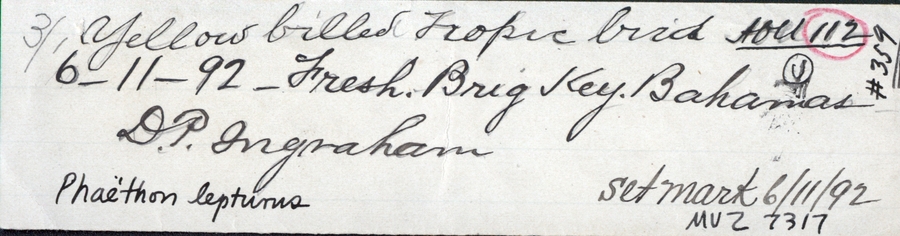 3/1 Yellow billed Tropic bird AOU 112
#359
6-11-92 - Fresh. Brig Key. Bahamas
D.P. Ingraham
Phaëthon lepturus
set mark 6/11/92
MVZ 7317